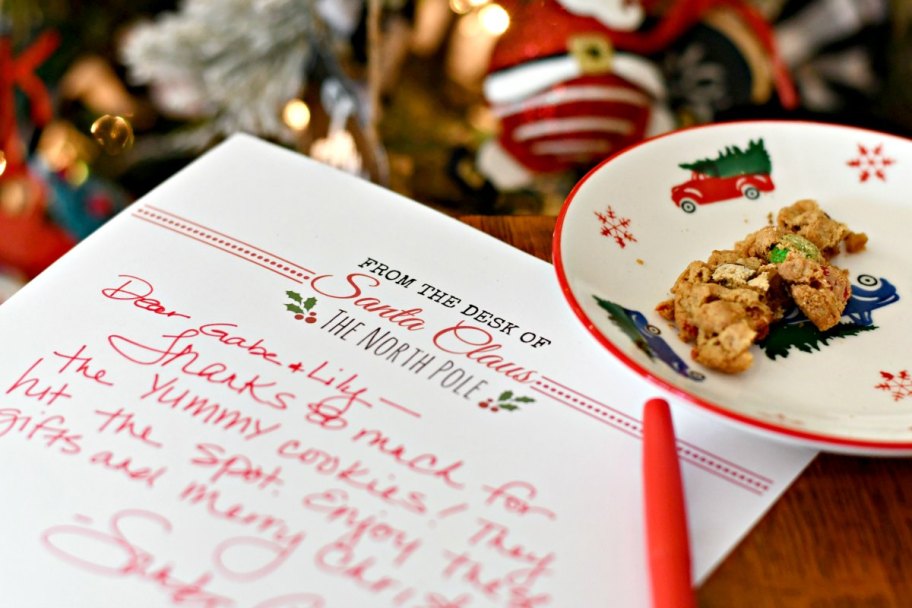 FROM THE DESK OF
Santa Claus
THE NORTH POLE
Dear Gabe & Lily —
Thanks so much for
the yummy cookies! They
hit the spot. Enjoy the
gifts and Merry Christ
- Santa